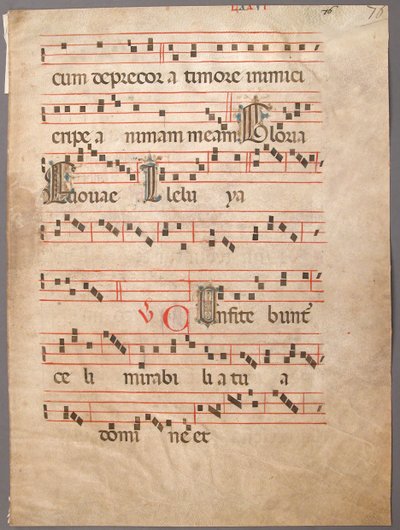 LXXVI 76 76
cum deprecor a timore inimici
eripe a nimam meam Gloria
Euouae Lleluya
℣ Confitebunt᷑
celi mirabilia tu a
domi ne et